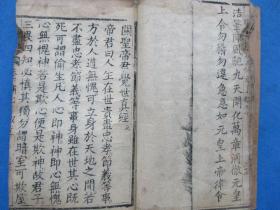 九天開化萬章
上命勾攝勿遲急急如元皇上帝律
關聖帝君覺世真經
帝君曰人生在世貴盡忠孝節義等事
方於人道無愧可立身於天地之間若
不盡忠孝節義等事身雖在世其心既
死可謂偷生凡人心即神神即心無愧
心無愧神若是欺心便是欺神故君子
三畏四知以慎其獨勿謂暗室可欺屋